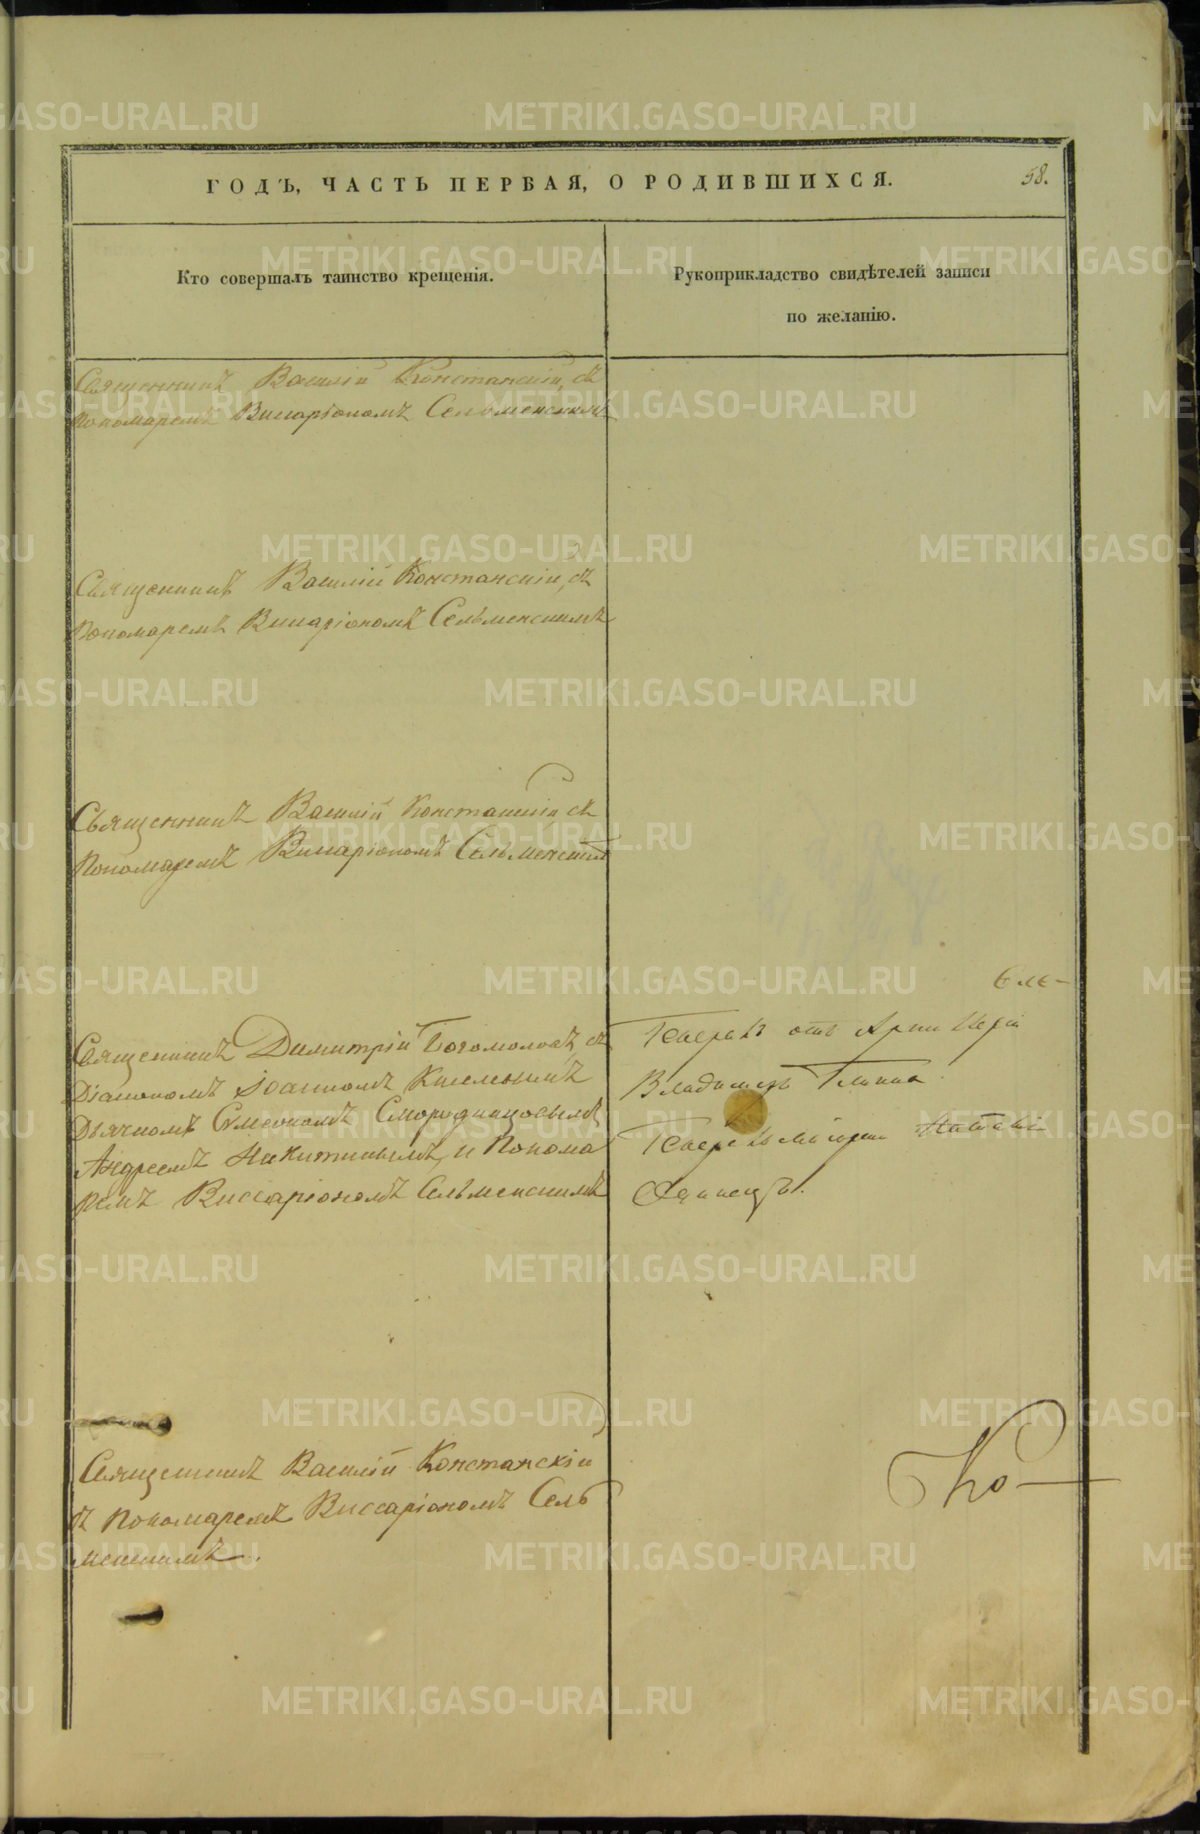 ГОДЪ, ЧАСТЬ ПЕРВАЯ, О РОДИВШИХСЯ.
58.
Кто совершалъ таинство крещенія.
Рукоприкладство свидѣтелей записи
по желанію.
Священникъ Василій Констанскій, съ
Пономаремъ Висаріономъ Сельменскимъ
Священникъ Василій Констанскій, съ
Пономаремъ Висаріономъ Сельменскимъ
Священникъ Василій Констанскій съ
Пономаремъ Висаріономъ Сельменскимъ
Священникъ Димитрій Богомоловъ, съ
Діакономъ Іоанномъ
Дьячкомъ Сѵмеономъ Смородинцовымъ,
Андреемъ Никитинымъ, и Понома
ремъ Виссаріономъ Сельменскимъ
Гене
отъ Арти
Владимиръ Глинка
Священникъ Василій Констанскій
съ Пономаремъ Виссаріономъ Сель
менскимъ.
Ко
METRIKI.GASO-URAL.RU